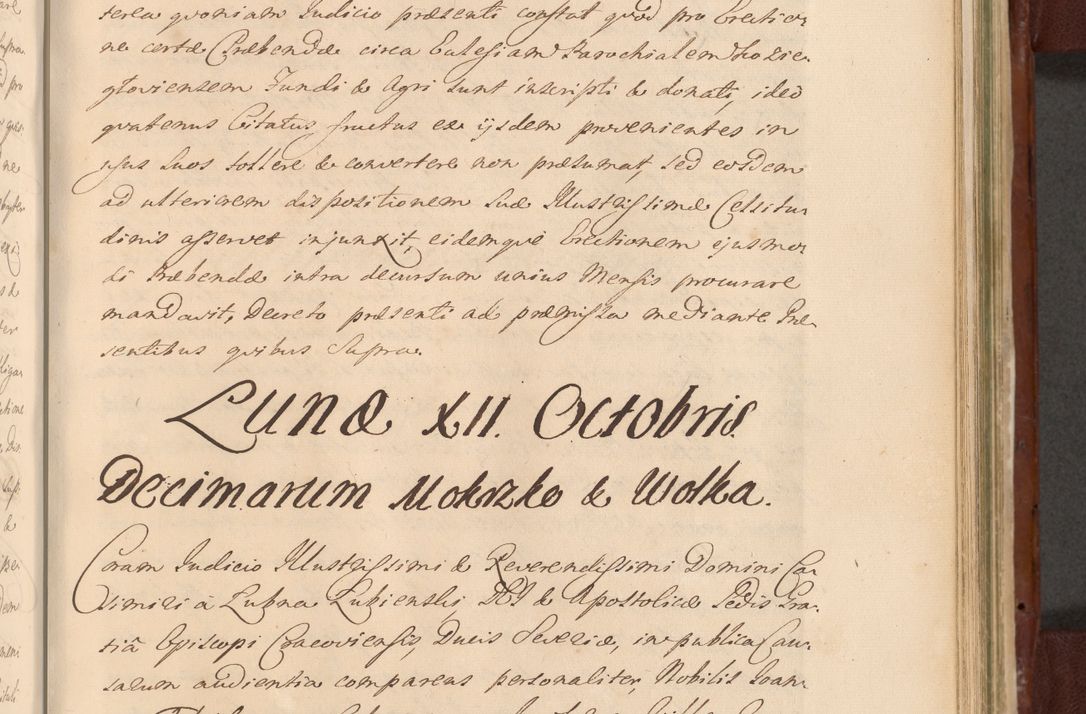 terea quoniam Judicio præsenti constat quod pro Erectio-
ne certæ Præbendæ circa Ecclesiam Parochialem Kozie-
głoviensem Fundi & Agri sunt inscripti & donati, ideo
quatenus Citatus fructus ex ijsdem provenientes in
usus suos tollere & convertere non præsumat, sed eosdem
ad ulteriorem dispositionem Suæ Illustrissimæ Celsitu
dinis asservet injunxit, eidemque Erectionem ejusmo-
di Præbendæ intra decursum unius Mensis procurare
mandavit, Decreto præsenti ad præmissa mediante Præ-
sentibus quibus supra.
Lunæ XII. Octobris
Decimarum Mokrzko & Wolka.
Coram Judicio Illustrissimi & Reverendissimi Domini Ca-
simiri à Lubna Lubienski DEI & Apostolicæ Sedis Gra-
tiâ Episcopi Cracoviensis, Ducis Severiæ, in publica Cau-
sarum audientia comparens personaliter, Nobilis Joan-